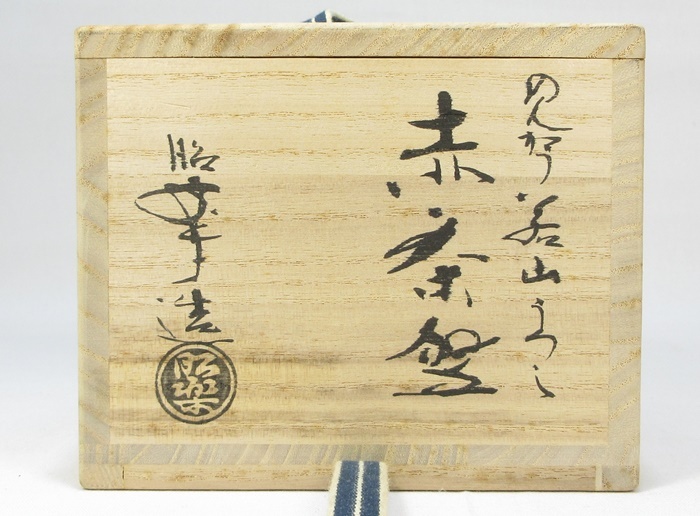 のんかう 若山うつし
赤茶盌
昭楽造
昭楽